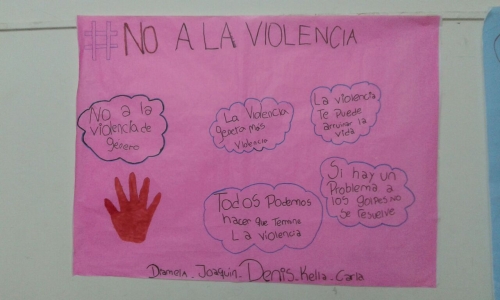 #NO A LA VIOLENCIA
No a la
violencia de
genero
La Violencia
genera mas
violencia
La violencia
Te Puede
arruinar la
vida
Todos Podemos
hacer que Termine
La violencia
Si hay un
Problema a
los golpes no
se resuelve
Joaquin - Denis - Keila - Carla